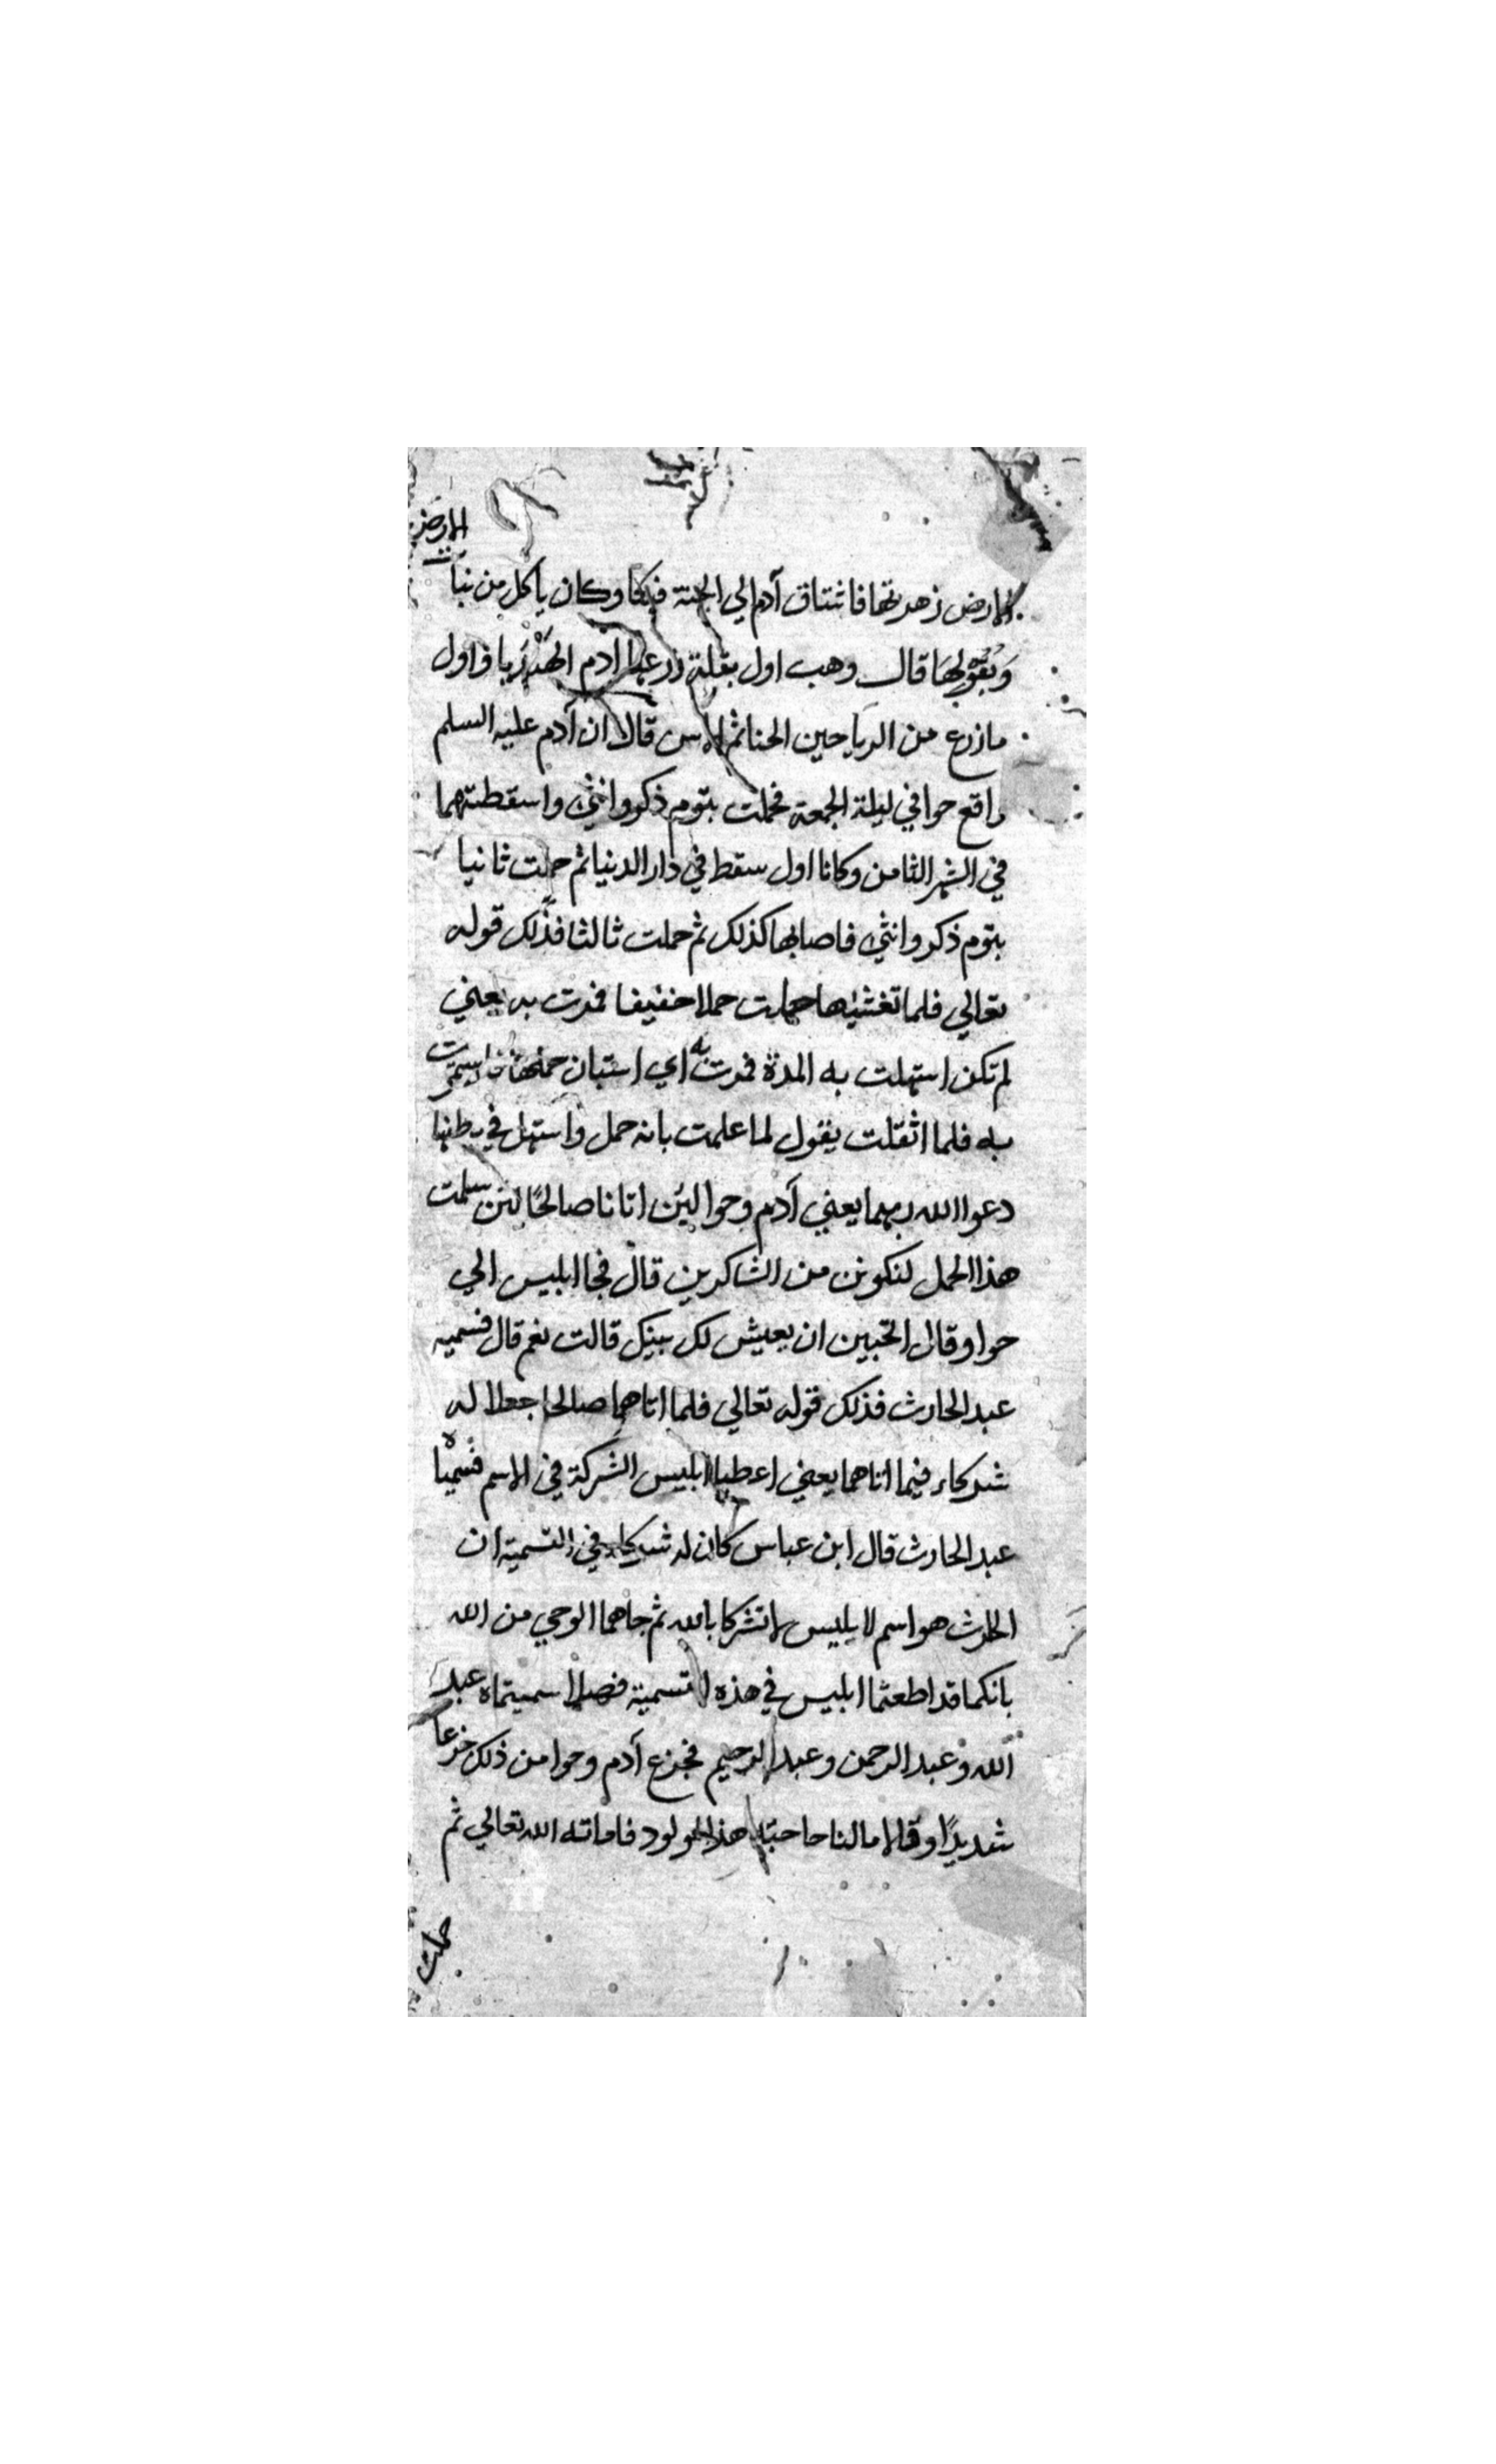 الارض
الارض زهرتها فاشتاق آدم الي الجنة فبكا وكان ياكل من نبات
وبقولها قال وهب اول بقلة زرعها آدم الهندبا واول
ما زرع من الرياحين الحنا ثم الاس قال ان آدم عليه السلم
واقع حوا في ليلة الجمعة فحملت بتوم ذكر وانثي واسقطتهما
في الشهر الثامن وكانا اول سقط في دار الدنيا ثم حملت ثانيا
بتوم ذكر وانثي فاصابها كذلك ثم حملت ثالثا فذلك قوله
تعالي فلما تغشيها حملت حملا خفيفا فمرت به يعني
لم تكن استهلت به المدة فمرت به اي استبان حملها فاستمرت
به فلما اثقلت يقول لما علمت بانه حمل واستهل في بطنها
دعوا الله ربهما يعني آدم وحوا لئن اتانا صالحًا لئن سلمت
هذا الحمل لنكونن من الشاكرين قال فجا ابليس الي
حوا وقال اتحبين ان يعيش لك بنيك قالت نعم قال فسميه
عبد الحارث فذلك قوله تعالي فلما اتاهما صالحا جعلا له
شركاء فيما اتاهما يعني اعطيا ابليس الشركة في الاسم فسمياه
عبد الحارث قال ابن عباس كان له شركا في التسمية ان
الحارث هو اسم لابليس لا تشركا بالله ثم جاهما الوحي من الله
بانكما قد اطعتما ابليس في هذه التسمية فهلا سميتماه عبد
الله وعبد الرحمن وعبد الرحيم فجزع آدم وحوا من ذلك جزعا
شديدًا وقالا ما لنا حاجة هذا المولود فاماته الله تعالي ثم
حملت